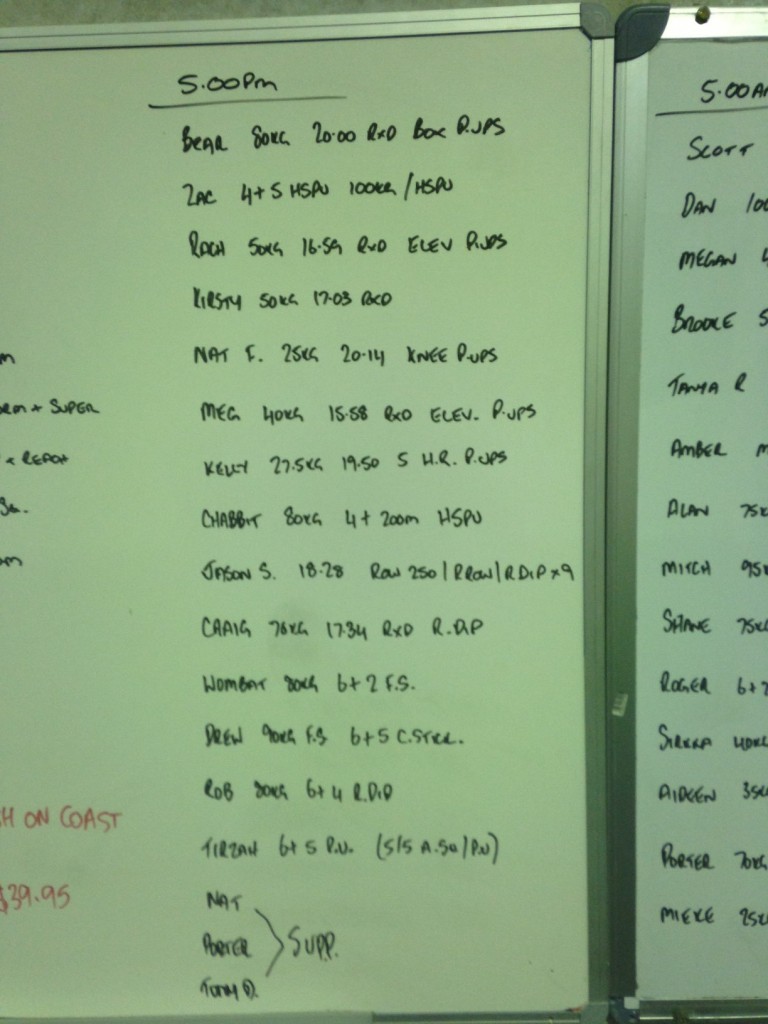 5.00PM
BEAR 80KG 20.00 RXD BOX P.UPS
ZAC 4+5 HSPU 100KG/HSPU
RACH 50KG 16.59 RXD ELEV P.UPS
KIRSTY 50KG 17.03 RXD
NAT F. 25KG 20.14 KNEE P.UPS
MEG 40KG 15.58 RXD ELEV. P.UPS
KELLY 27.5KG 19.50 5 H.R. P.UPS
CHABBIT 80KG 4+200m HSPU
JASON S. 18.28 ROW 250/RROW/R.DIP x9
CRAIG 17.34 RXD R.DIP
WOMBAT 80KG 6+2 F.S.
DREW 90KG F.S 6+5
ROB 80KG 6+4 R.DIP
TIRZAH 6+5 P.U. (5/5 A.SQ/P.U)
NAT
PORTER
SUPP.
TONY D.
+ SUPER
H ON COAST
$39.95
5.00A
SCOTT
DAN 100
MEGAN 4
BROOKE 5
TANYA R
AMBER M
ALAN 75K
MITCH 95K
SHANE 75KG
ROGER 6+2
40KG
AIDEEN 35K
PORTER 70KG
MIEKE 25K